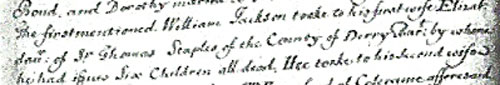 Bond, and Dorothy
The first mentioned. William Jackson tooke to his first wife Elizab:
dau: of Sr Thomas Staples of the County of Derry Bar: by whome
he had issue Six Children all dead, Hee tooke to his second wife
of Coleraine afforesaid